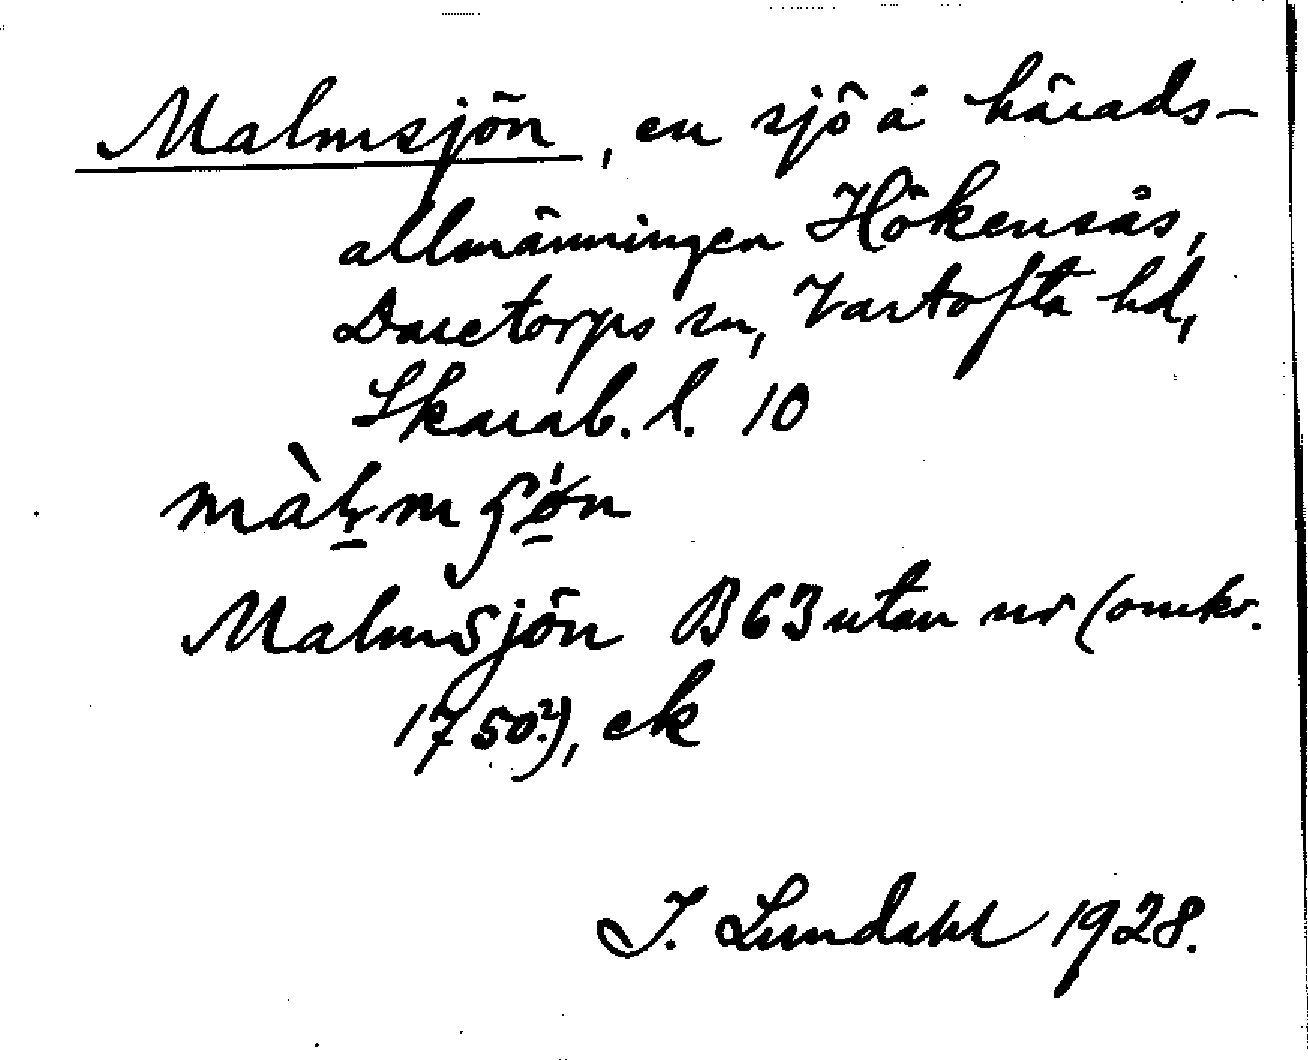 Malmsjön, en sjö å härads-
allmänningen Hökensås,
Daretorps sn, Vartofta hd,
Skarab. l. 10
Malmsjön B63 utan nr (omkr.
1750?), ek
I. Lundahl 1928.